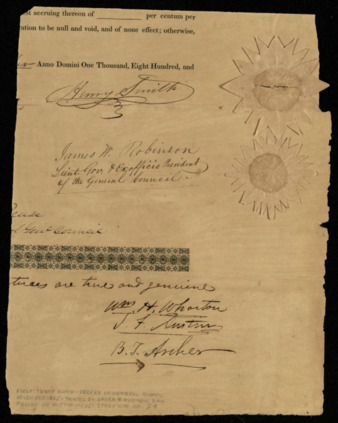 st accruing thereon of ________ per centum per
ation to be null and void, and of none effect; otherwise,
Anno Domini One Thousand, Eight Hundred, and
Henry Smith
James W. Robinson
Lieut. Gov. & Exofficio President
of the General Council.
tures are true and genuine
Wm. H. Wharton
S F Austin
B. T. Archer